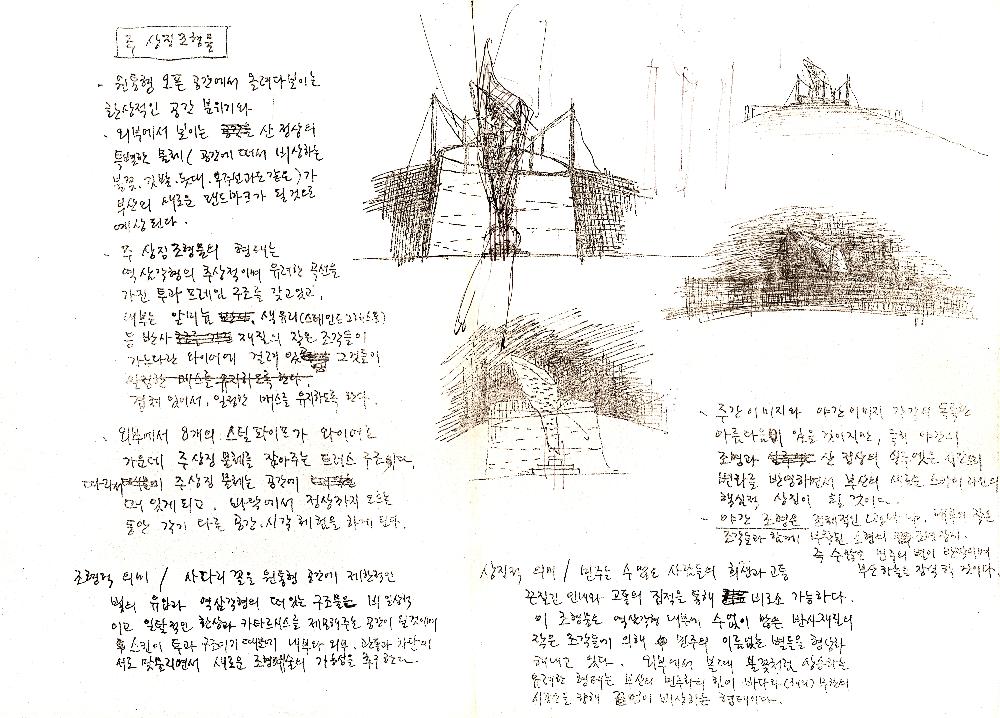 주 상징조형물
- 원통형 오픈 공간에서 올려다보이는
환상적인 공간 분위기와
- 외부에서 보이는 산 정상의
특별한 물체( 공간에 떠서 비상하는
불꽃, 깃발, 돛대, 우주선과도 같은 )가
부산의 새로운 랜드마크가 될것으로
예상된다.
- 주 상징조형물의 형태는
역삼각형의 추상적이며 유려한 곡선을
가진 투과 프레임 구조를 갖고있고,
내부는 알미늄 색유리(스테인드 글라스용)
등 반사 재질의 작은 조각들이
가느다란 와이어에 걸려 있 그것들이
일정한 매스를 유지하도록 한다.
겹쳐 있어서, 일정한 매스를 유지하도록 한다.
- 외부에서 8개의 스틸파이프가 와이어로
가운데 주상징 물체를 잡아주는 트러스 구조이다.
따라서 주상징 물체는 공간에
떠 있게되고, 바닥에서 정상까지 오르는
동안 각기 다른 공간.시각 체험을 하게 된다.
- 주간이미지와 야간이미지 각각의 독특한
아름다움이 있을것이지만, 특히 야간의
조명과 산 정상의
부산의 새로운
핵심적 상징이 될 것이다.
- 야간 조명은 내부의 작은
조각들과 함께
즉 수많은 민주의 별이
부산하늘을 장식 할 것이다.
조형적 의미 / 사다리꼴은 원통형 공간에 제한적인
빛의 유입과 역삼각형의 떠있는 구조물은 비일상적
이고 일탈적인 환상과 카타르시스를 제공해주는 공간이 될것이며
스킨이 투과구조이기 때문에 내부와 외부, 관통과 차단이
서로 맞물리면서 새로운 조형예술의 가능성을 추구한다.
상징적 의미 / 민주는 수많은 사람들의 희생과 고통
끈질긴 인내와 고통의 집적을 통해 비로소 가능하다.
이 조형물은 역삼각형 내부에 수없이 많은 반사재질의
작은 조각들에 의해 민주의 이름없는 별들을 형상화
해내고 있다. 외부에서 볼때 불꽃처럼 상승하는
유려한 형태는 부산의 민주화의 힘이 바다와
향해 끝없이 비상하는 형태이다.